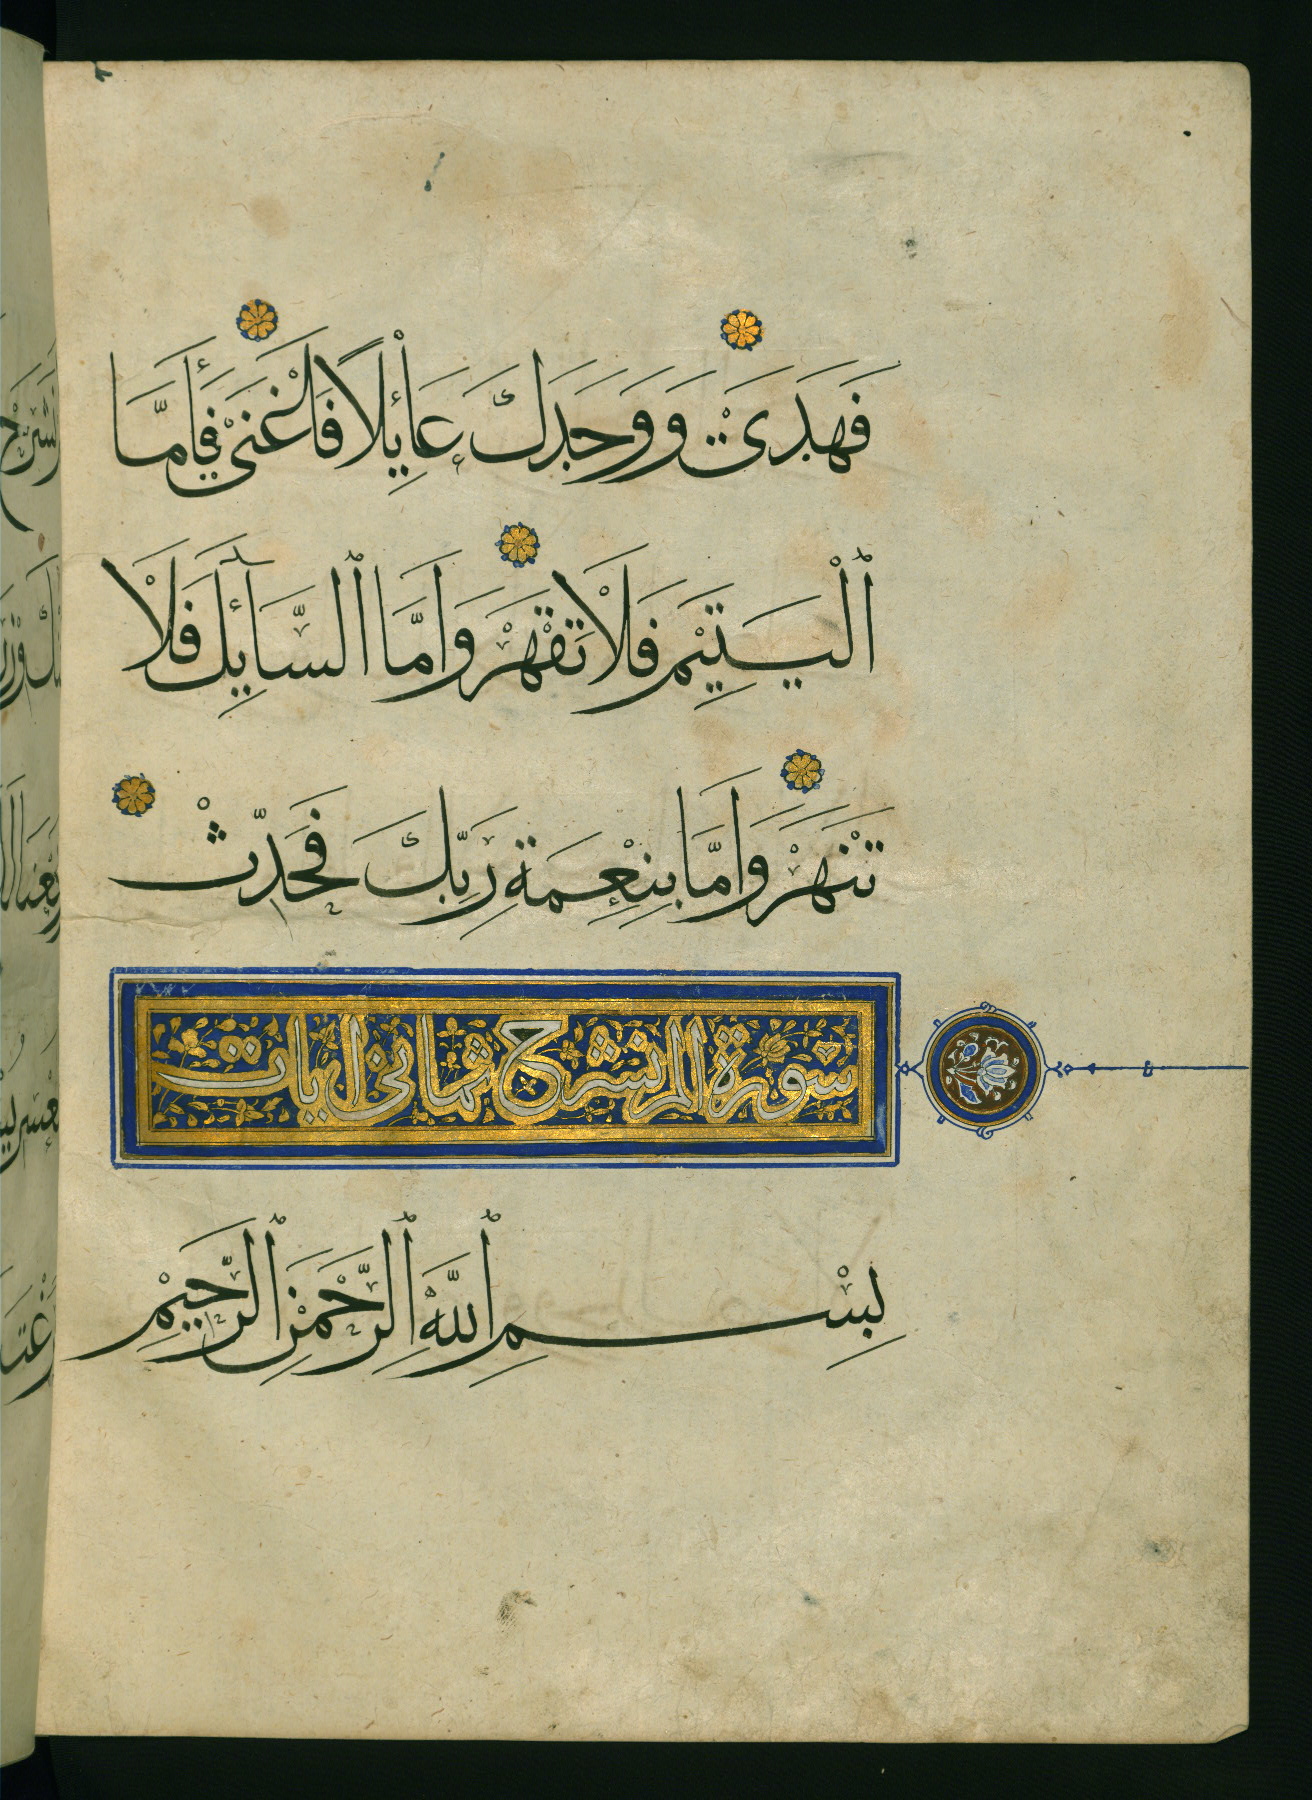 فَهَدَىٰ وَوَجَدَكَ عَائِلًا فَأَغْنَىٰ فَأَمَّا
ٱلْيَتِيمَ فَلَا تَقْهَرْ وَأَمَّا ٱلسَّآئِلَ فَلَا
تَنْهَرْ وَأَمَّا بِنِعْمَةِ رَبِّكَ فَحَدِّثْ
سورة الم نشرح ثماني ايات
بِسْمِ ٱللَّهِ ٱلرَّحْمَنِ ٱلرَّحِيمِ